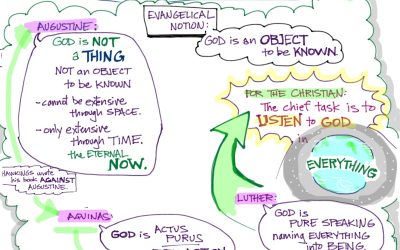 AUGUSTINE:
GOD is NOT
a THING
NOT an OBJECT
to be KNOWN
- cannot be extensive
through SPACE.
- only extensive
through TIME.
the ETERNAL
NOW.
HAWKINGS wrote
his book AGAINST
AUGUSTINE.
AQUINAS
GOD is ACTUS
PURUS
EVANGELICAL
NOTION:
GOD is an OBJECT
to be KNOWN.
FOR THE CHRISTIAN:
The chief task is to
LISTEN to GOD
in
EVERYTHING
LUTHER:
GOD is
PURE SPEAKING
naming EVERYTHING
into BEING.